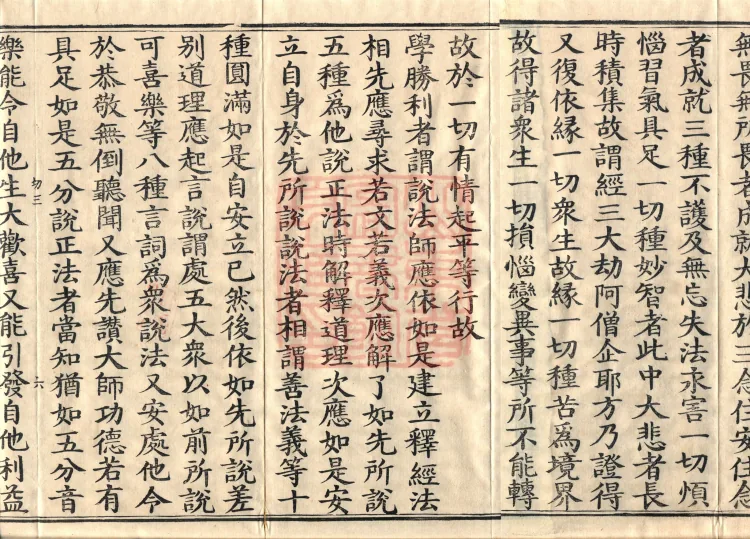 無畏無所畏者成就大悲於三念住安住念
者成就三種不護及無忘失法永害一切煩
惱習氣具足一切種妙智者此中大悲者長
時積集故謂經三大劫阿僧企耶方乃證得
又復依縁一切衆生故縁一切種苦爲境界
故得諸衆生一切損惱變異事等所不能轉
故於一切有情起平等行故
學勝利者謂說法師應依如是建立釋經法
相先應尋求若文若義次應解了如先所說
五種爲他說正法時解釋道理次應如是安
立自身於先所說說法者相謂善法義等十
種圓滿如是自安立已然後依如先所說差
别道理應起言說謂處五大衆以如前所說
可喜樂等八種言詞爲衆說法又安處他令
於恭敬無倒聽聞又應先讚大師功德若有
具足如是五分說正法者當知猶如五分音
樂能令自他生大歡喜又能引發自他利益
六